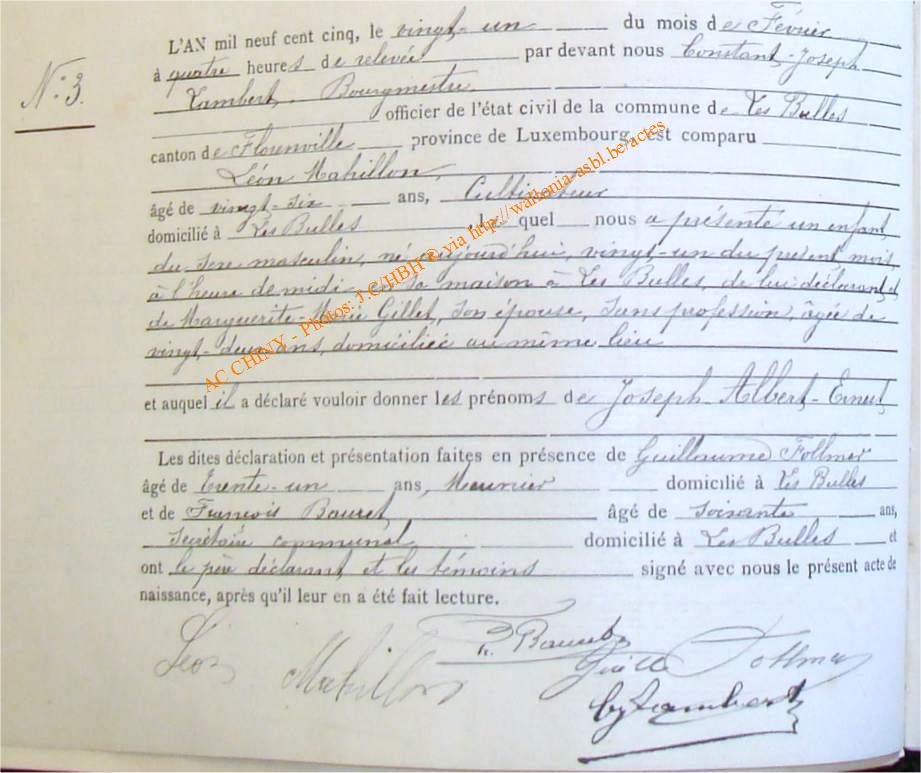 L'AN mil neuf cent cinq, le vingt-un du mois de Février
à quatre heures de relevée par devant nous Constant-Joseph
N.: 3.
Lambert, Bourgmestre
officier de l'état civil de la commune de Les Bulles
canton de Florenville province de Luxembourg, est comparu
Léon Mahillon,
âgé de vingt-six ans, Cultivateur
domicilié à Les Bulles, lequel nous a présenté un enfant
du sexe masculin, né aujourd'hui, vingt-un du présent mois,
à l'heure de midi en sa maison à Les Bulles, de lui déclarant et
de Marguerite-Marie Gillet, son épouse, sans profession, âgée de
vingt-deux ans, domiciliée au même lieu
et auquel il a déclaré vouloir donner les prénoms de Joseph-Albert-Ernest
Les dites déclaration et présentation faites en présence de Guillaume Follmer
âgé de trente-un ans, Meunier domicilié à Les Bulles
et de François Bauret, âgé de soixante ans,
secrétaire communal domicilié à Les Bulles et
ont le père déclarant et les témoins signé avec nous le présent acte de
naissance, après qu'il leur en a été fait lecture.
Léon Mahillon
F. Bauret
Follmer
Lambert
AC CHINY - Photos: J.C/HBH ® via http://wallonia-asbl.be/actes